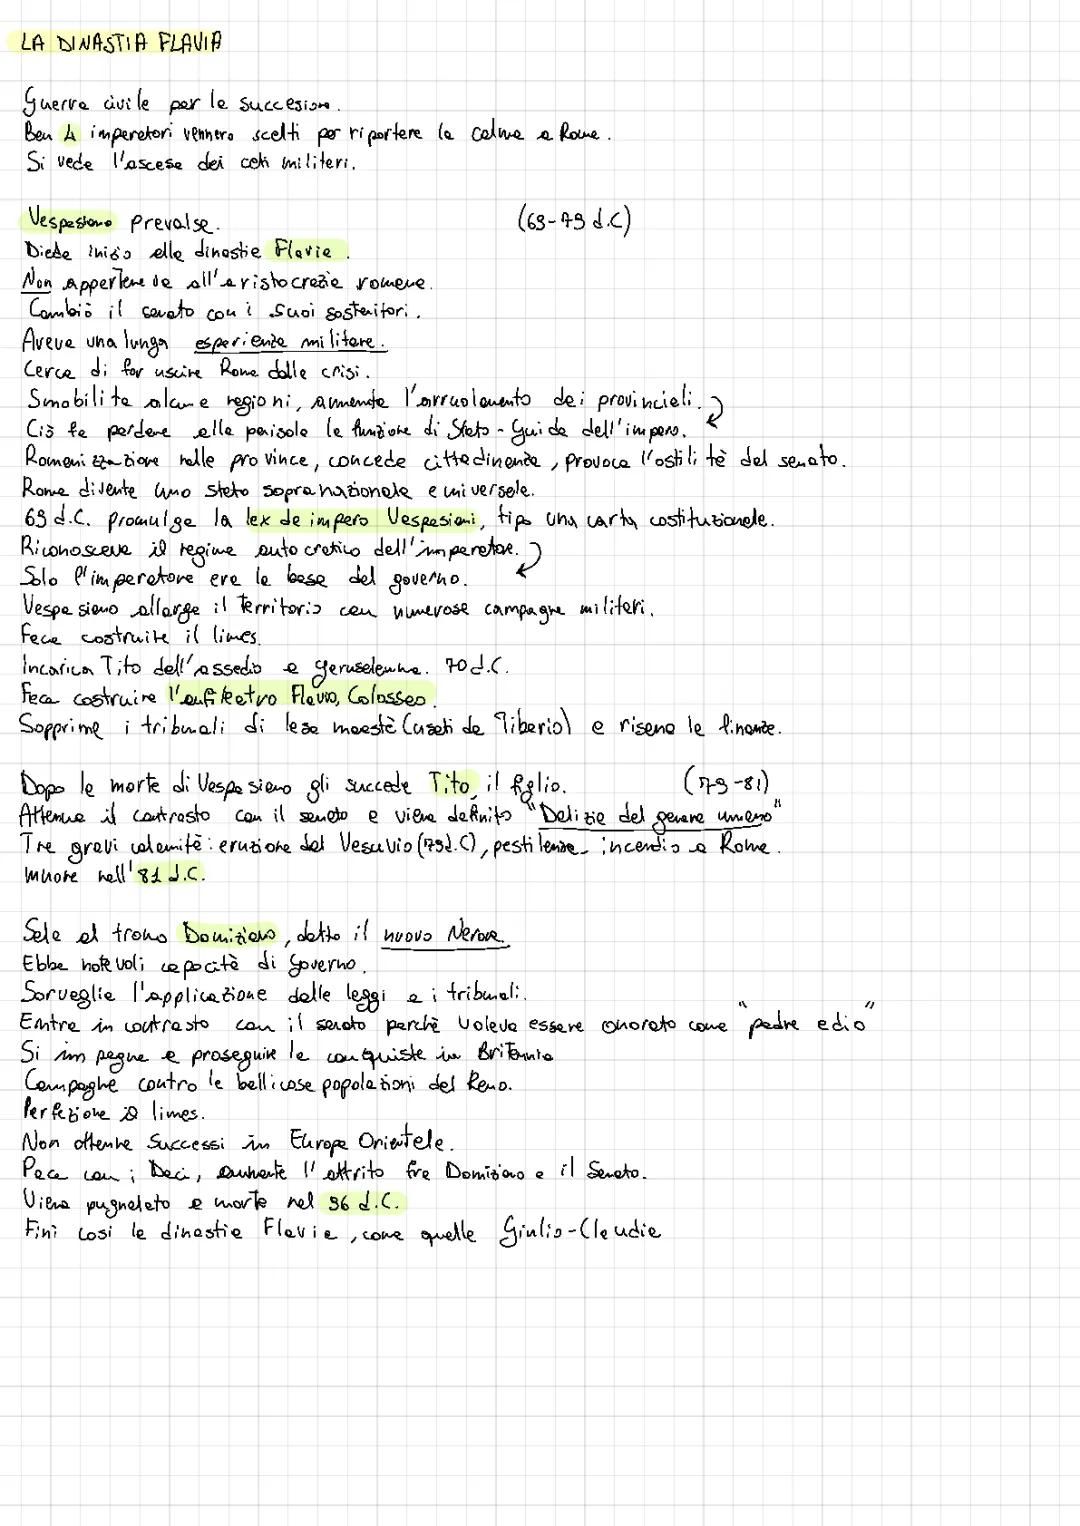 LA DINASTIA FLAVIA
Guerra civile per la succesione.
Ben 4 imperatori vennero scelti per riportare la calma a Roma.
Si vede l'ascesa dei ceti militari.
Vespasiano prevalse. (69-79 d.C)
Diede inizio alla dinastia Flavia.
Non apparteneva all'aristocrazia romana.
Cambiò il senato con i suoi sostenitori.
Aveva una lunga esperienza militare.
Cerca di far uscire Roma dalla crisi.
Smobilita alcune regioni, aumenta l'arruolamento dei provinciali.
Ciò fa perdere alla penisola la funzione di Stato-Guida dell'impero.
Romanizzazione nelle province, concede cittadinanza, provoca l'ostilità del senato.
Roma diventa uno stato sopranazionale e universale.
69 d.C. promulga la lex de impero Vespasiani, tipo una carta costituzionale.
Riconosceva il regime autocratico dell'imperatore.
Solo l'imperatore era la base del governo.
Vespasiano allarga il territorio con numerose campagne militari.
Fece costruire il limes.
Incarica Tito dell'assedio a Gerusalemme. 70 d.C.
Fece costruire l'anfiteatro Flavio, Colosseo.
Sopprime i tribunali di lesa maestà (usati da Tiberio) e risana le finanze.
Dopo la morte di Vespasiano gli succede Tito, il figlio. (79-81)
Attenua il contrasto con il senato e viene definito "Delizia del genere umano"
Tre gravi calamità: eruzione del Vesuvio (79d.C), pestilenza, incendio a Roma.
Muore nell'81 d.C.
Sale al trono Domiziano, detto il nuovo Nerone.
Ebbe notevoli capacità di governo.
Sorveglia l'applicazione delle leggi e i tribunali.
Entra in contrasto con il senato perchè voleva essere onorato come "padre e dio"
Si impegna a proseguire le conquiste in Britannia
Campagne contro le bellicose popolazioni del Reno.
Perfeziona il limes.
Non ottenne successi in Europa Orientale.
Pace con i Daci, aumenta l'attrito fra Domiziano e il Senato.
Viene pugnalato a morte nel 96 d.C.
Finì così la dinastia Flavia, come quella Giulio-Claudia